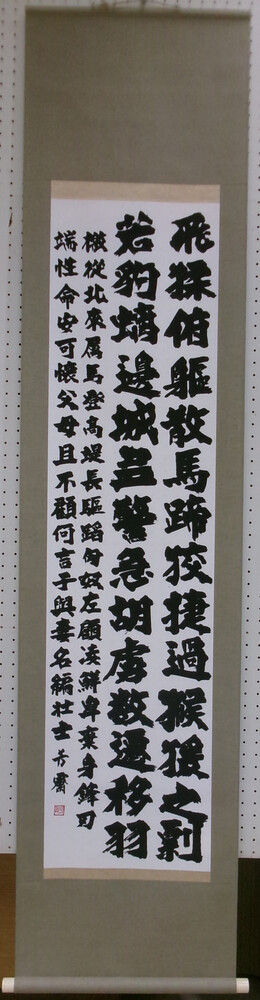 飛猱俯軀散馬蹄狡捷過猴猿之剽
若豹螭邊城警急胡虜數遷移羽
檄從北來厲馬登高堤長驅蹈匈奴左顧凌鮮卑棄身鋒刃
端性命安可懷父母且不顧何言子與妻名編壮士 芳